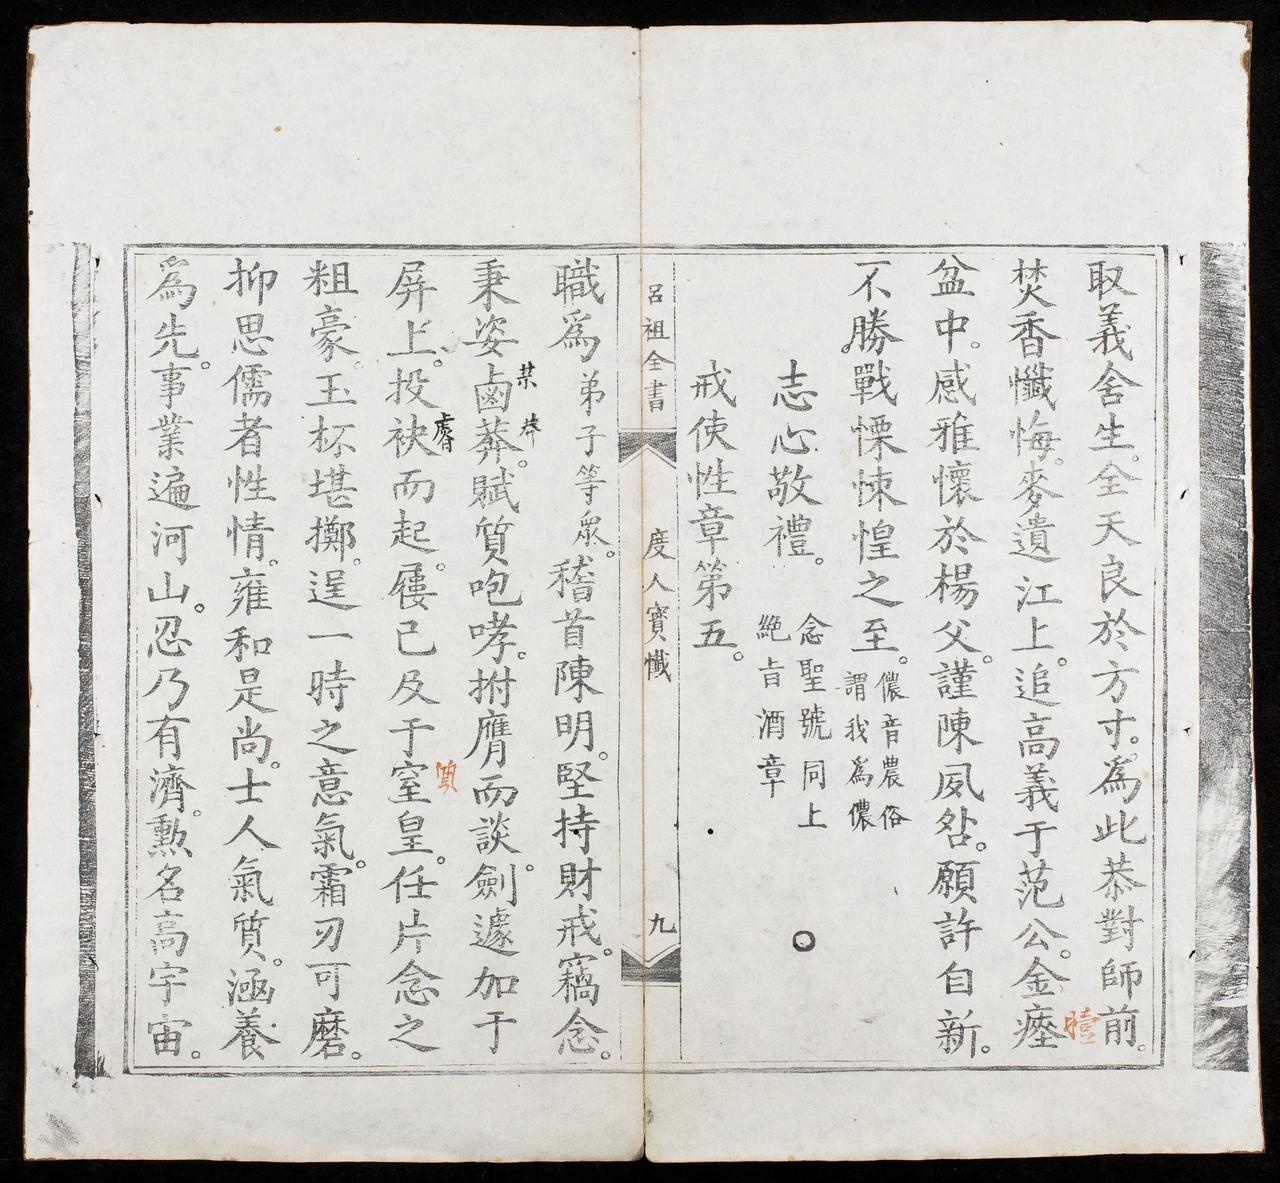 取義舍生。全天良於方寸。為此恭對師前。
焚香懺悔。麥遺江上。追高義于范公。金瘞
盆中。感雅懷於楊父。謹陳夙咎。願許自新。
不勝戰慄悚惶之至。儂音農俗
謂我為儂
志心敬禮。念聖號同上
絶旨酒章
戒使性章第五。
呂祖全書
度人寶懺
九
職為弟子等眾。稽首陳明。堅持財戒。竊念。
秉姿鹵莽。賦質咆哮。拊膺而談。劍遽加于
屏上。投袂而起。屨已及于窒皇。任片念之
粗豪。玉杯堪擲。逞一時之意氣。霜刃可磨。
抑思儒者性情。雍和是尚。士人氣質。涵養
為先。事業遍河山。忍乃有濟。勲名高宇宙。